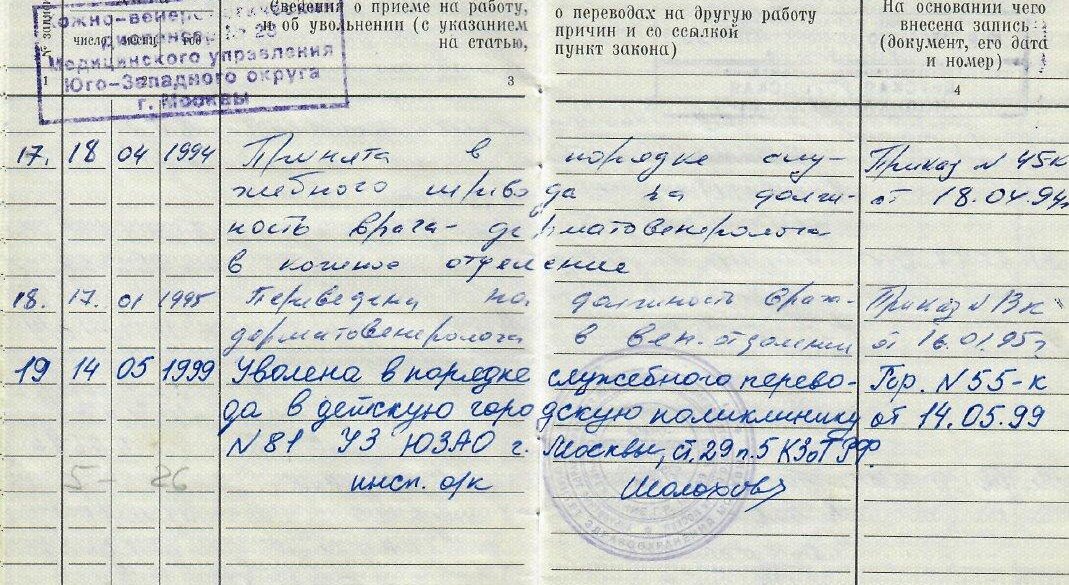 Сведения о приеме на работу, о переводах на другую работу
и об увольнении (с указанием причин и со ссылкой
на статью, пункт закона)
На основании чего
внесена запись
(документ, его дата
и номер)
№ записи
число месяц год
1 3 4
кожно-венерологический
диспансер № 29
Медицинского управления
Юго-Западного округа
г. Москвы
17. 18 04 1994 Принята в порядке слу- Приказ N 45к
жебного перевода на долж- от 18.04.94г
ность врача-дерматовенеролога
в кожное отделение
18. 17. 01 1995 Переведена на должность врача- Приказ N 13к
дерматовенеролога в вен. отделении от 16.01.95г
19 14 05 1999 Уволена в порядке служебного перево- Пр. N 55-к
да в детскую городскую поликлинику от 14.05.99
N 81 УЗ ЮЗАО г. Москвы, ст. 29 п. 5 КЗоТ РФ.
5 - 26 инсп. о/к